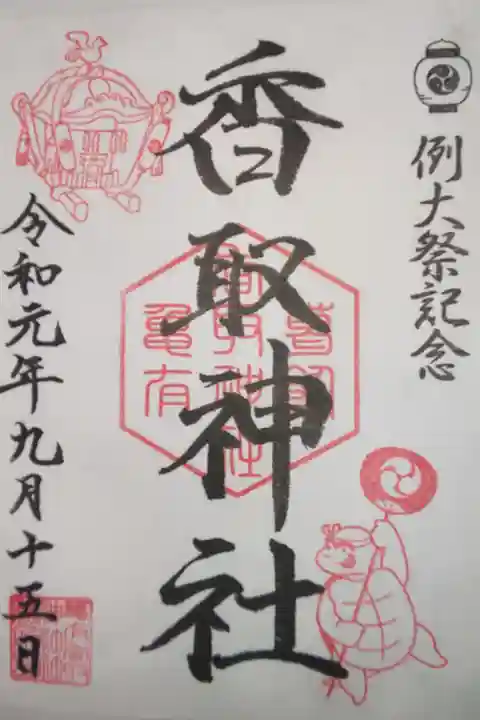 例大祭記念
香取神社
亀有
令和元年九月十五日